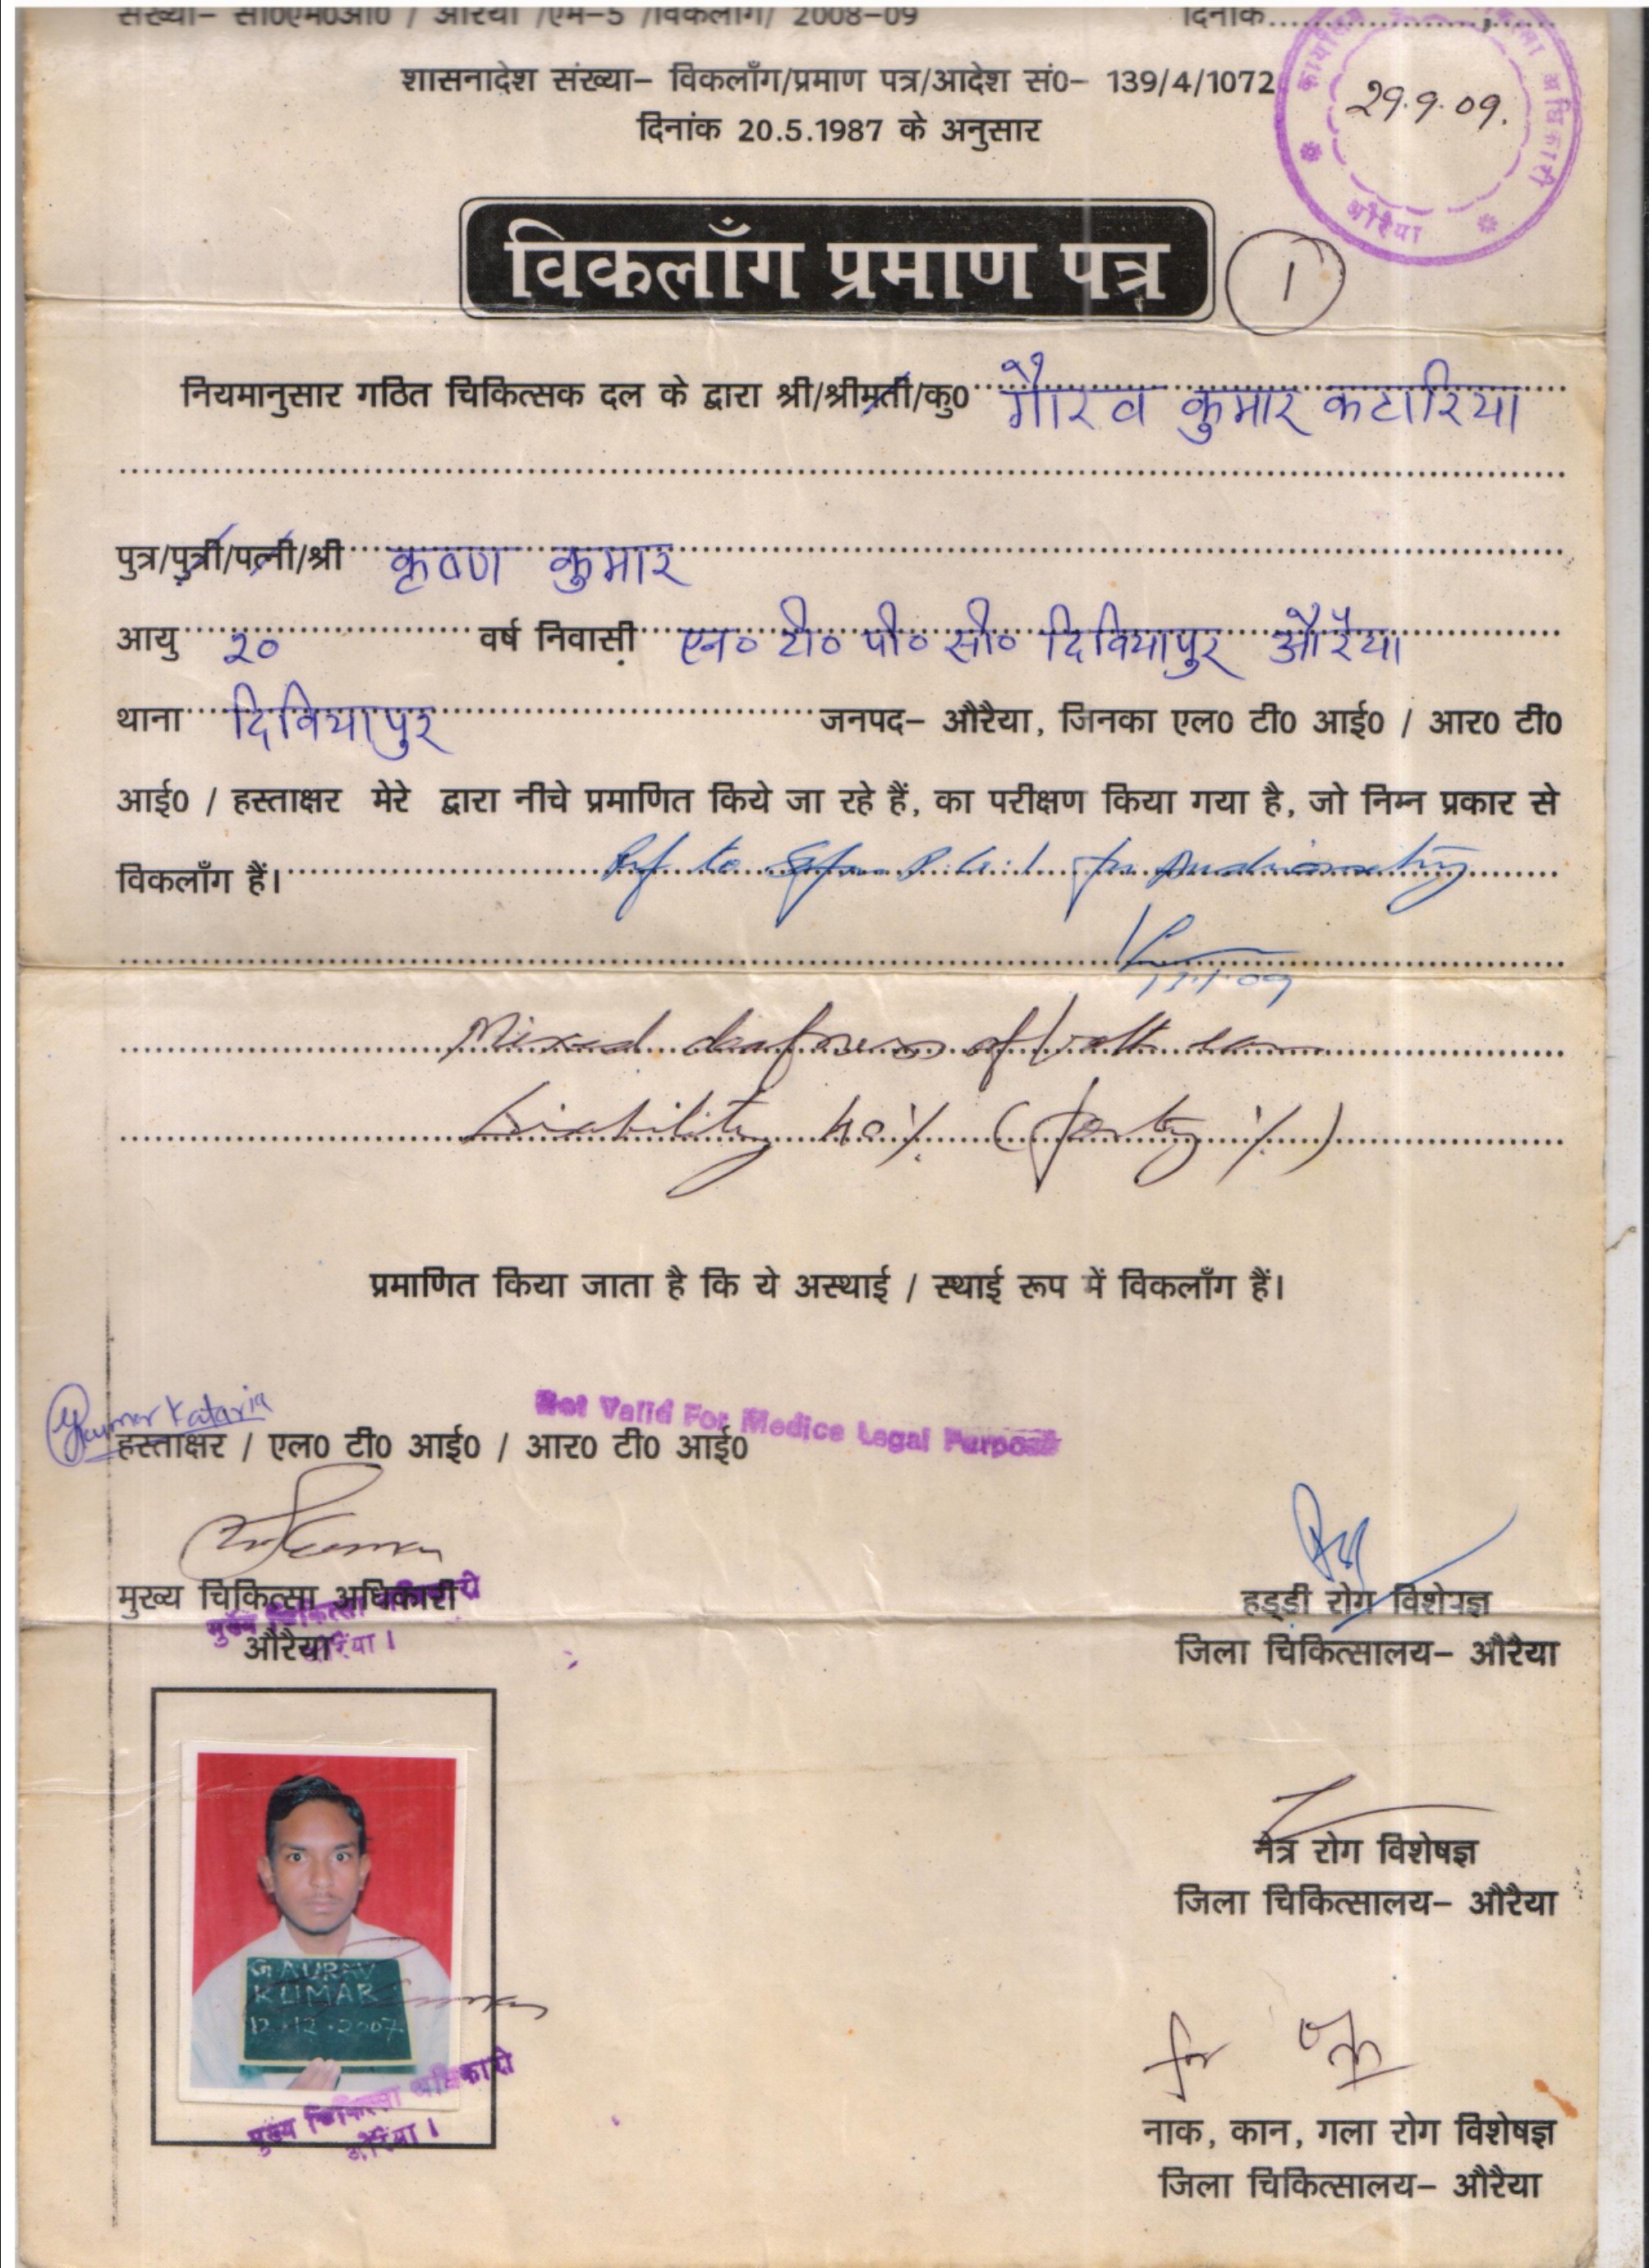 संख्या– सी०एम०ओ० / औरैया /एम–5 /विकलांग/ 2008–09 दिनांक....................
कार्यालय अधिकारी
औरैया
29.9.09.
शासनादेश संख्या– विकलाँग/प्रमाण पत्र/आदेश सं0– 139/4/1072
दिनांक 20.5.1987 के अनुसार
विकलाँग प्रमाण पत्र
1
नियमानुसार गठित चिकित्सक दल के द्वारा श्री/श्रीमती/कु0 गौरव कुमार कटारिया
पुत्र/पुत्री/पत्नी/श्री कृष्ण कुमार
आयु २० वर्ष निवासी एन० टी० पी० सी० दिबियापुर औरैया
थाना दिबियापुर जनपद– औरैया, जिनका एल0 टी0 आई0 / आर0 टी0
आई0 / हस्ताक्षर मेरे द्वारा नीचे प्रमाणित किये जा रहे हैं, का परीक्षण किया गया है, जो निम्न प्रकार से
विकलाँग हैं। Ref to for Audiometry
Mixed deafness of both ears
Disability 40% (forty %)
प्रमाणित किया जाता है कि ये अस्थाई / स्थाई रूप में विकलाँग हैं।
Gkumar Kataria
Not Valid For Medico Legal Purpose
हस्ताक्षर / एल0 टी0 आई0 / आर0 टी0 आई0
मुख्य चिकित्सा अधिकारी
औरैया
मुख्य चिकित्सा अधिकारी
औरैया।
हड्डी रोग विशेषज्ञ
जिला चिकित्सालय– औरैया
नेत्र रोग विशेषज्ञ
जिला चिकित्सालय– औरैया
GAURAV
KUMAR
12.12.2007
मुख्य चिकित्सा अधिकारी
औरैया।
for
नाक, कान, गला रोग विशेषज्ञ
जिला चिकित्सालय– औरैया